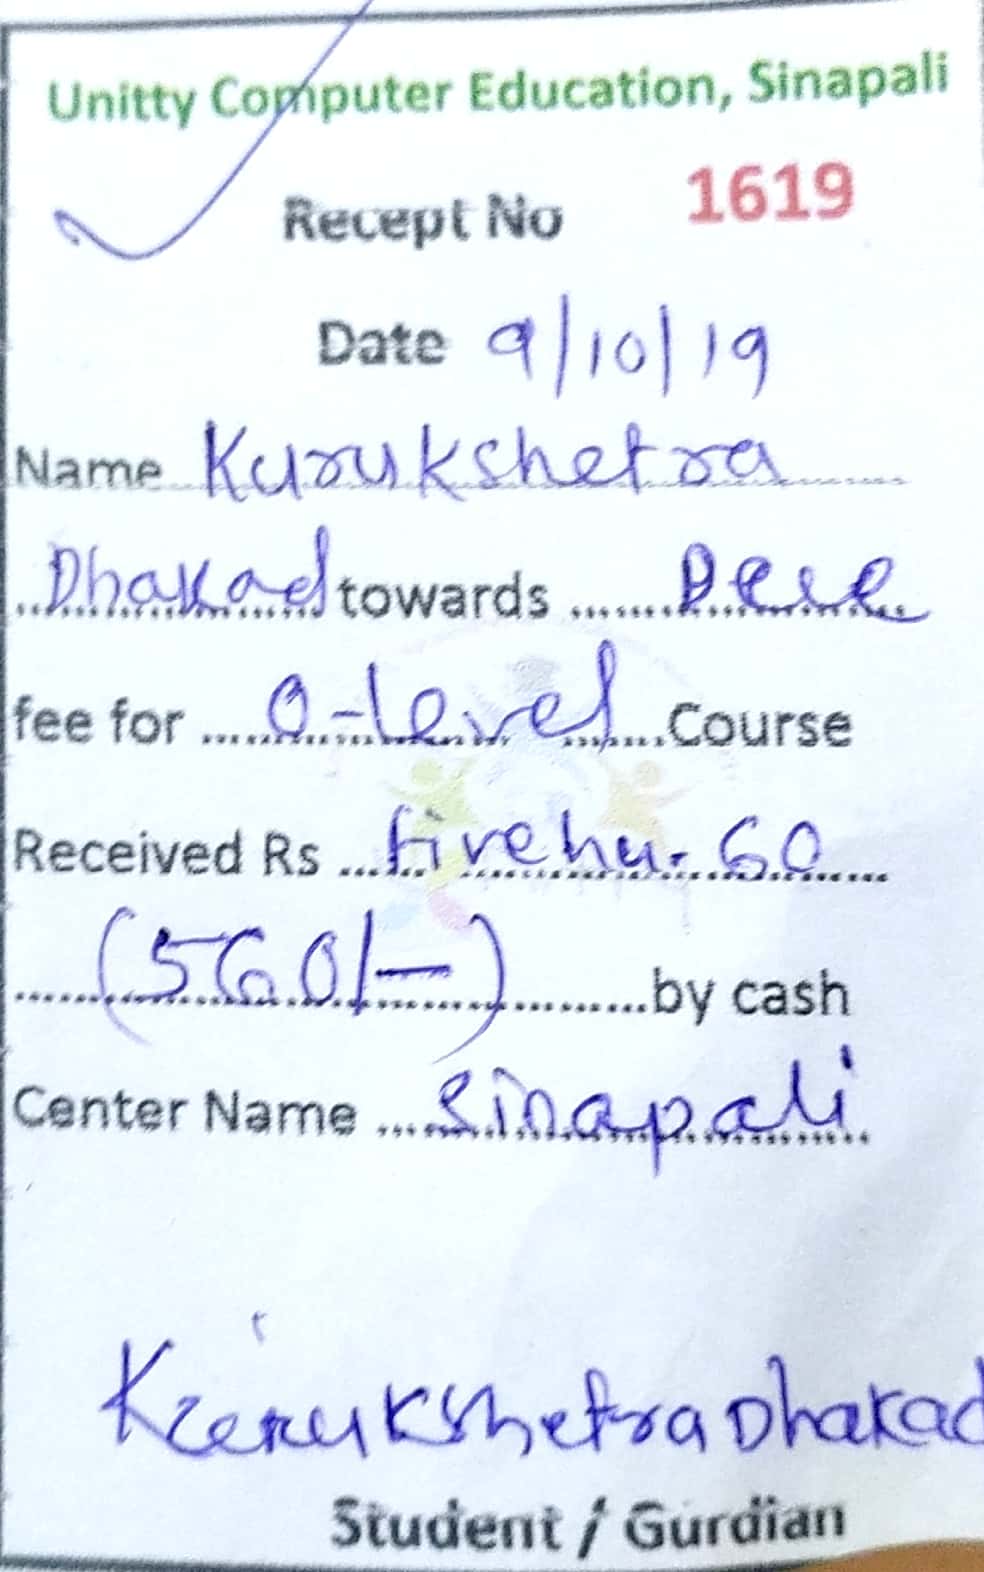 Unitty Computer Education, Sinapali
Recept No 1619
Date 9/10/19
Name Kurukshetra
Dhakad towards
fee for O-level Course
Received Rs five hu. 60
(560/-) by cash
Center Name Sinapali
Kurukshetra Dhakad
Student / Gurdian